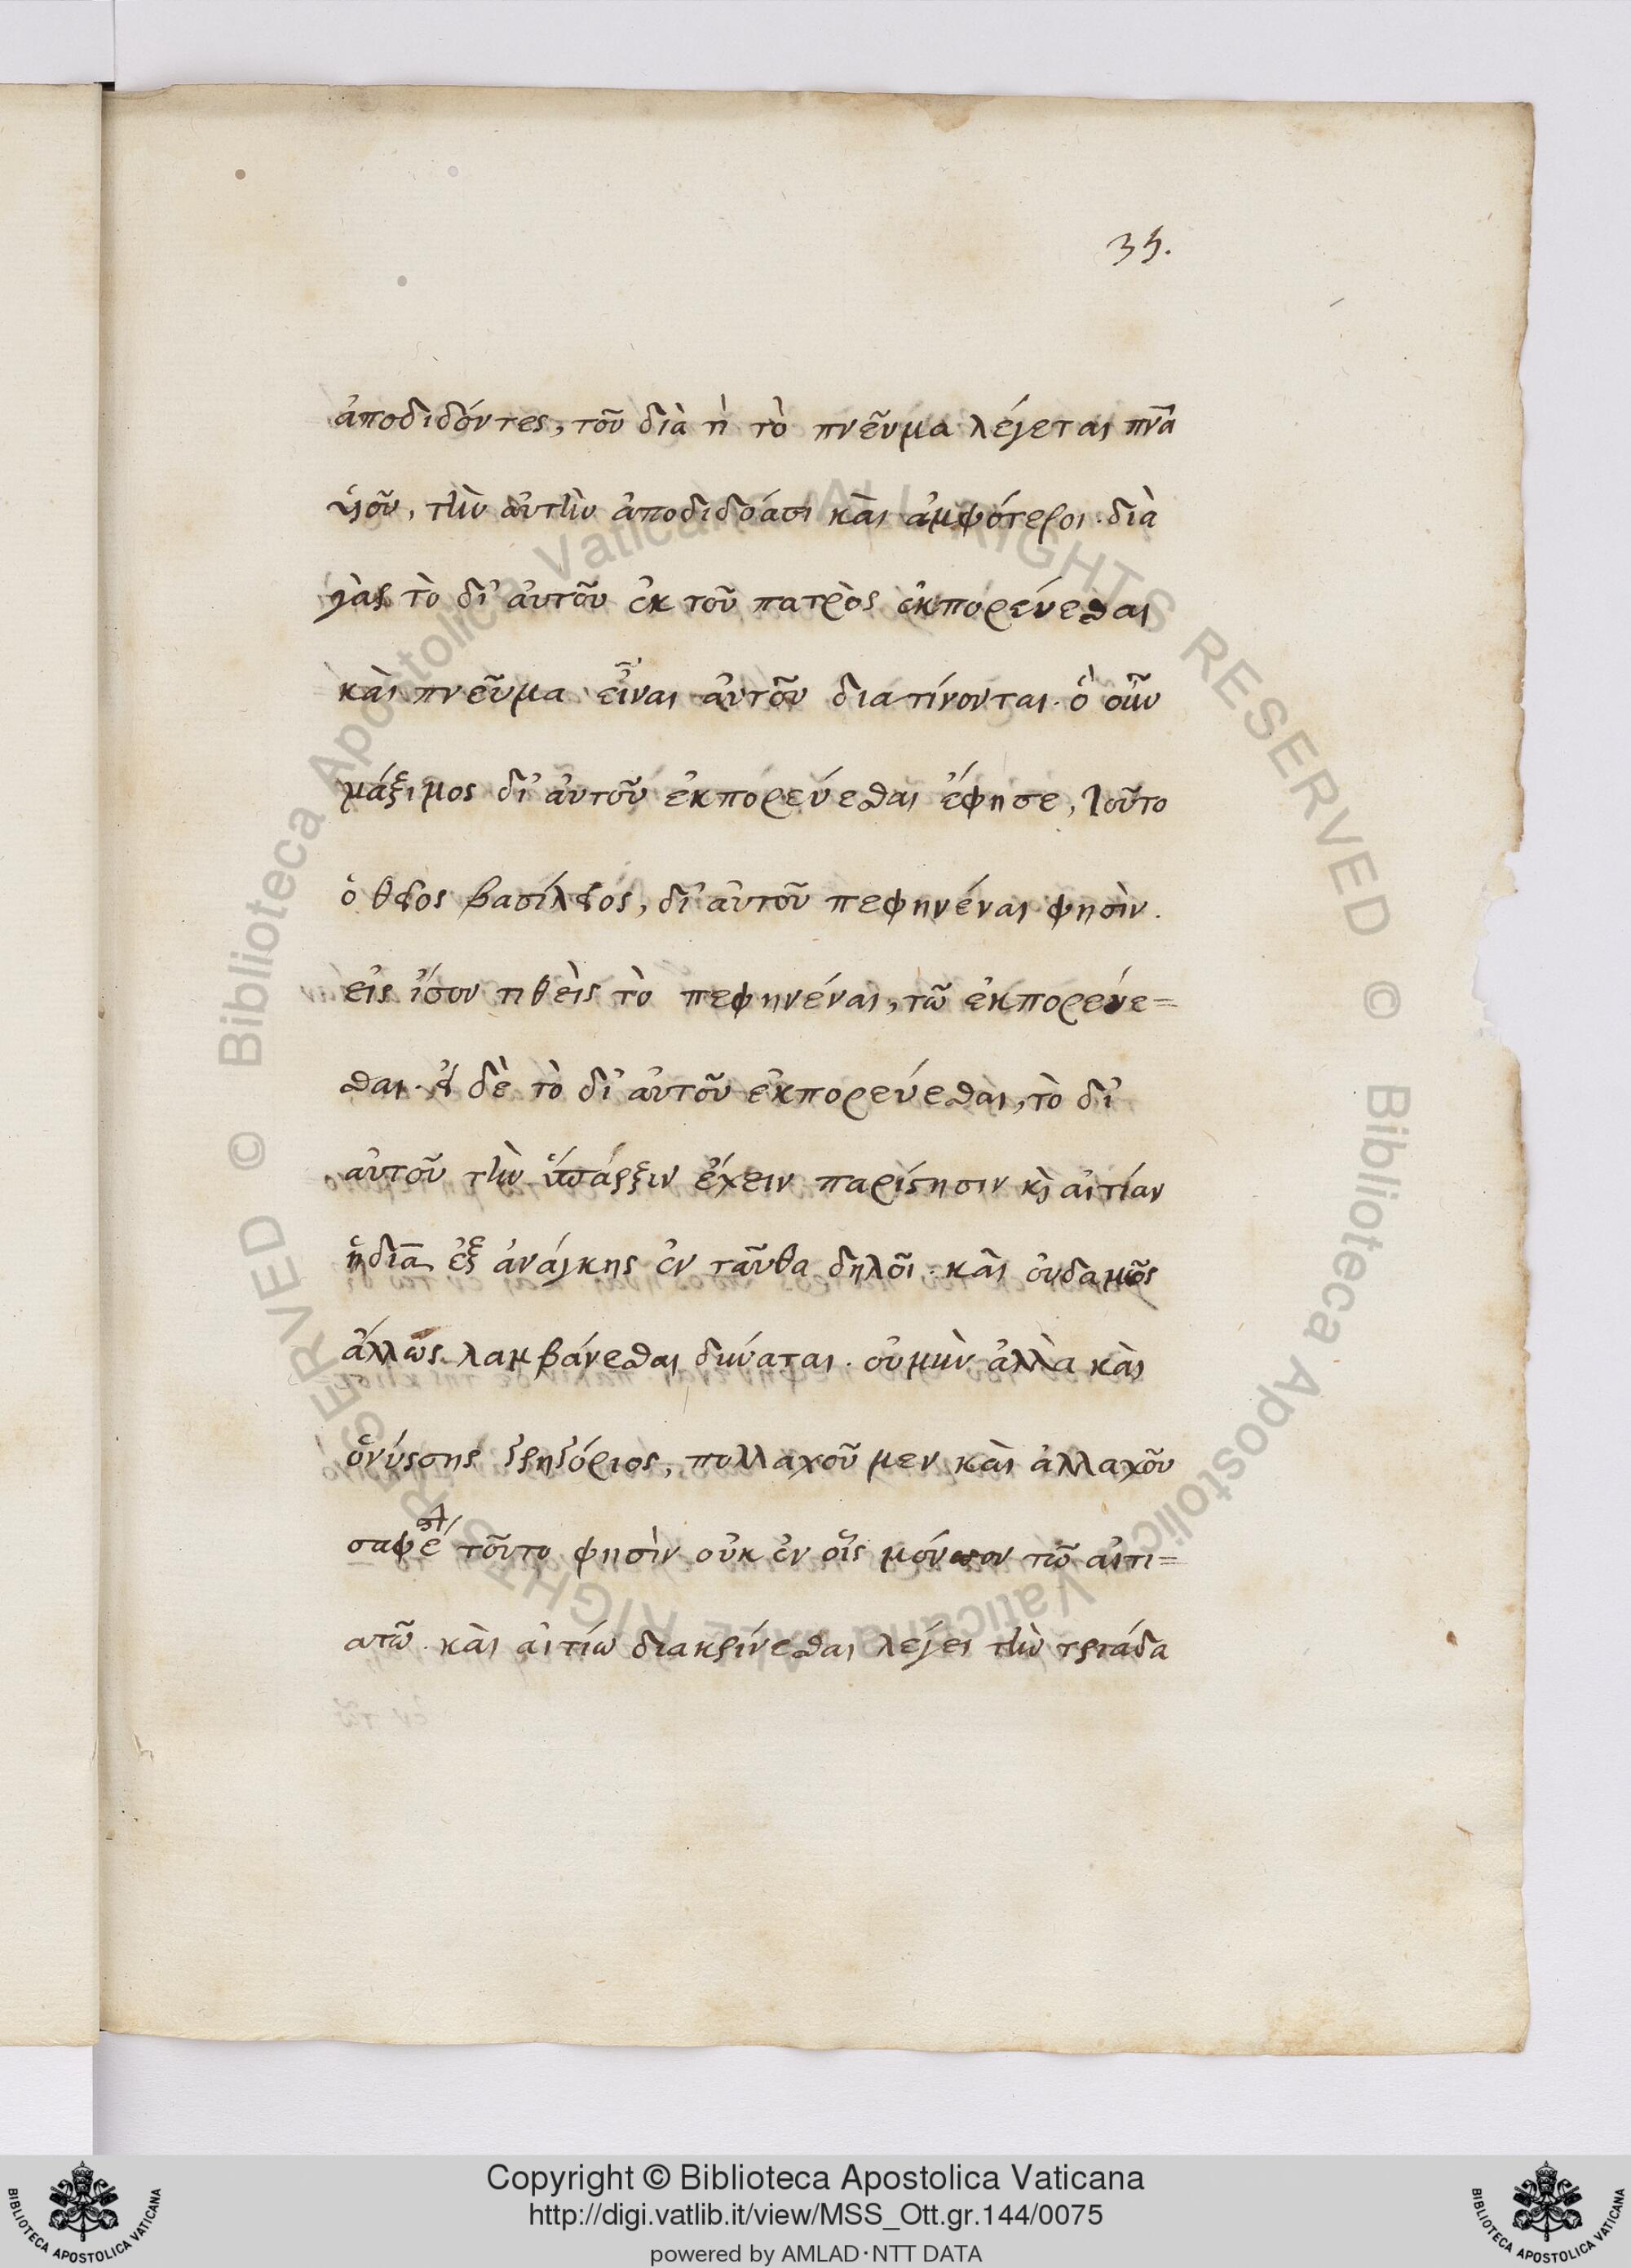 35.
ἀποδιδόντες, τοῦ διὰ τὶ τὸ πνεῦμα λέγεται πν̅α
ὑιοῦ, τὴν ἀυτὴν ἀποδιδόασι κὰι ἀμφότεροι. διὰ
γὰρ τὸ δι' ἀυτοῦ ἐκ τοῦ πατρὸς ἐκπορέυεσθαι
κὰι πνεῦμα εἶναι ἀυτοῦ διατίνονται. ὃ οὖν
μάξιμος δι' ἀυτοῦ ἐκπορεύεσθαι ἔφησε, τοῦτο
ὁ θεῖος βασίλειος, δι' ἀυτοῦ πεφηνέναι φησὶν.
εἰς ἴσον τιθεὶς τὸ πεφηνέναι, τῶ ἐκπορεύε=
σθαι. εἰ δὲ τὸ δι' ἀυτοῦ ἐκπορεύεσθαι, τὸ δι'
αὐτοῦ τὴν ὕπαρξιν ἔχειν παρίστησιν κὶ αἰτίαν
ἡ διὰ ἐξ ἀνάγκης ἐν ταῦθα δηλοῖ. κὰι ὀυδαμῶς
ἄλλως λαμβάνεσθαι δύναται. οὐμὴν ἀλλὰ κὰι
ὁνύσσης γρηγόριος, πολλαχοῦ μεν κὰι ἀλλαχοῦ
σαφέστ τοῦτο φησὶν οὐκ ἐν οἷς μόνον τῶ αἰτι=
ατῶ. κὰι αἰτίω διακρίνεσθαι λέγει τὴν τριάδα
Copyright © Biblioteca Apostolica Vaticana
http://digi.vatlib.it/view/MSS_Ott.gr.144/0075
powered by AMLAD·NTT DATA
BIBLIOTECA APOSTOLICA VATICANA
BIBLIOTECA APOSTOLICA VATICANA
© Biblioteca Apostolica Vaticana ALL RIGHTS RESERVED © Biblioteca Apostolica Vaticana ALL RIGHTS RESERVED